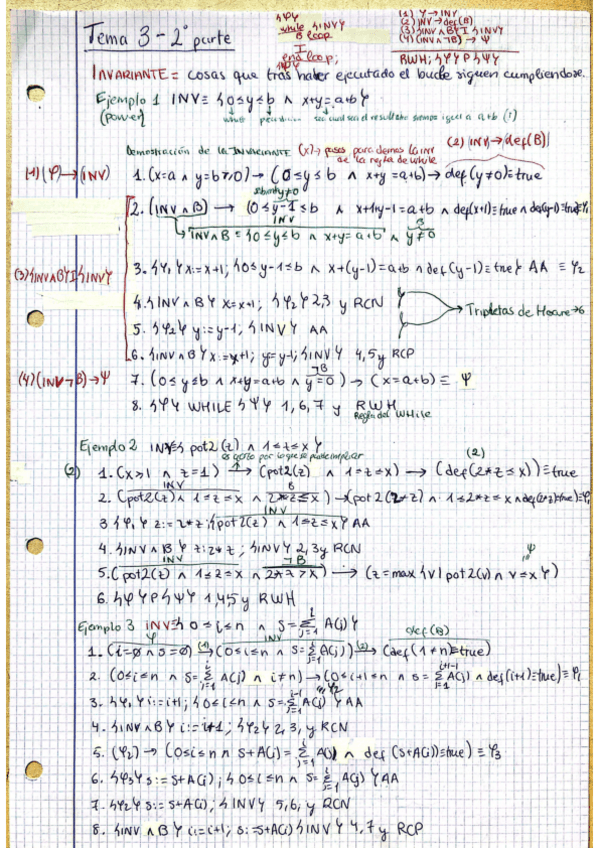 Tema 3 - 2ª parte
{φ}
while {INV}
B loop
I
end loop;
{ψ}
(1) φ → INV
(2) INV → def(B)
(3) {INV∧B} I {INV}
(4) (INV ∧ ¬B) → ψ
RWH; {φ} P {ψ}
INVARIANTE = cosas que tras haber ejecutado el bucle siguen cumpliendose.
Ejemplo 1 INV ≡ {0≤y≤b ∧ x+y=a+b}
(power)
Demostración de la INVARIANTE (x) → pasos para demos la INV de la regla de while
(2) INV → def(B)
(1) (φ) → (INV)
1. (x=a ∧ y=b≥0) → (0≤y≤b ∧ x+y=a+b) → def(y≠0)≡true
2. (INV ∧ B) → (0≤y-1≤b ∧ x+1+y-1=a+b ∧ def(x+1)≡true ∧ def(y-1)≡true) ≡ φ₁
INV∧B ≡ {0≤y≤b ∧ x+y=a+b ∧ y≠0
(3) {INV∧B} I {INV}
3. {φ₁} x:=x+1; {0≤y-1≤b ∧ x+(y-1)=a+b ∧ def(y-1)≡true} AA ≡ φ₂
4. {INV∧B} x=x+1; {φ₂} 2,3 y RCN
Tripletas de Hoare→6
5. {φ₂} y:=y-1; {INV} AA
6. {INV∧B} x:=x+1; y=y-1; {INV} 4,5 y RCP
(4) (INV¬B) → ψ
7. (0≤y≤b ∧ x+y=a+b ∧ y=0) → (x=a+b) ≡ ψ
8. {φ} WHILE {ψ} 1,6,7 y RWH
Regla del While
Ejemplo 2 INV≡{pot2(z) ∧ 1≤z≤x}
(2)
(2) 1. (x≥1 ∧ z=1) → (pot2(z) ∧ 1≤z≤x) → (def(2*z≤x))≡true
2. (pot2(z) ∧ 1≤z≤x ∧ 2*z≤x) → (pot2(2*z) ∧ 1≤2*z≤x ∧ def(2*z)≡true) ≡ φ₁
3. {φ₁} z:=2*z; {pot2(z) ∧ 1≤z≤x} AA
4. {INV∧B} z:2*z; {INV} 2,3 y RCN
5. (pot2(z) ∧ 1≤z≤x ∧ 2*z>x) → (z=max{v|pot2(v) ∧ v≤x})
6. {φ} P {ψ} 1,4,5 y RWH
Ejemplo 3 INV≡{0≤i≤n ∧ s=∑ A(j)}
1. (i=0 ∧ s=0) → (0≤i≤n ∧ s=∑ A(j)) → (def(i≠n)≡true)
2. (0≤i≤n ∧ s=∑ A(j) ∧ i≠n) → (0≤i+1≤n ∧ s=∑ A(j) ∧ def(i+1)≡true) ≡ φ₁
3. {φ₁} i:=i+1; {0≤i≤n ∧ s=∑ A(j)} AA
4. {INV∧B} i:=i+1; {φ₂} 2,3, y RCN
5. (φ₂) → (0≤i≤n ∧ s+A(i)=∑ A(j) ∧ def(s+A(i))≡true) ≡ φ₃
6. {φ₃} s:=s+A(i); {0≤i≤n ∧ s=∑ A(j)} AA
7. {φ₂} s:=s+A(i); {INV} 5,6, y RCN
8. {INV∧B} i:=i+1; s:=s+A(i) {INV} 4,7 y RCP